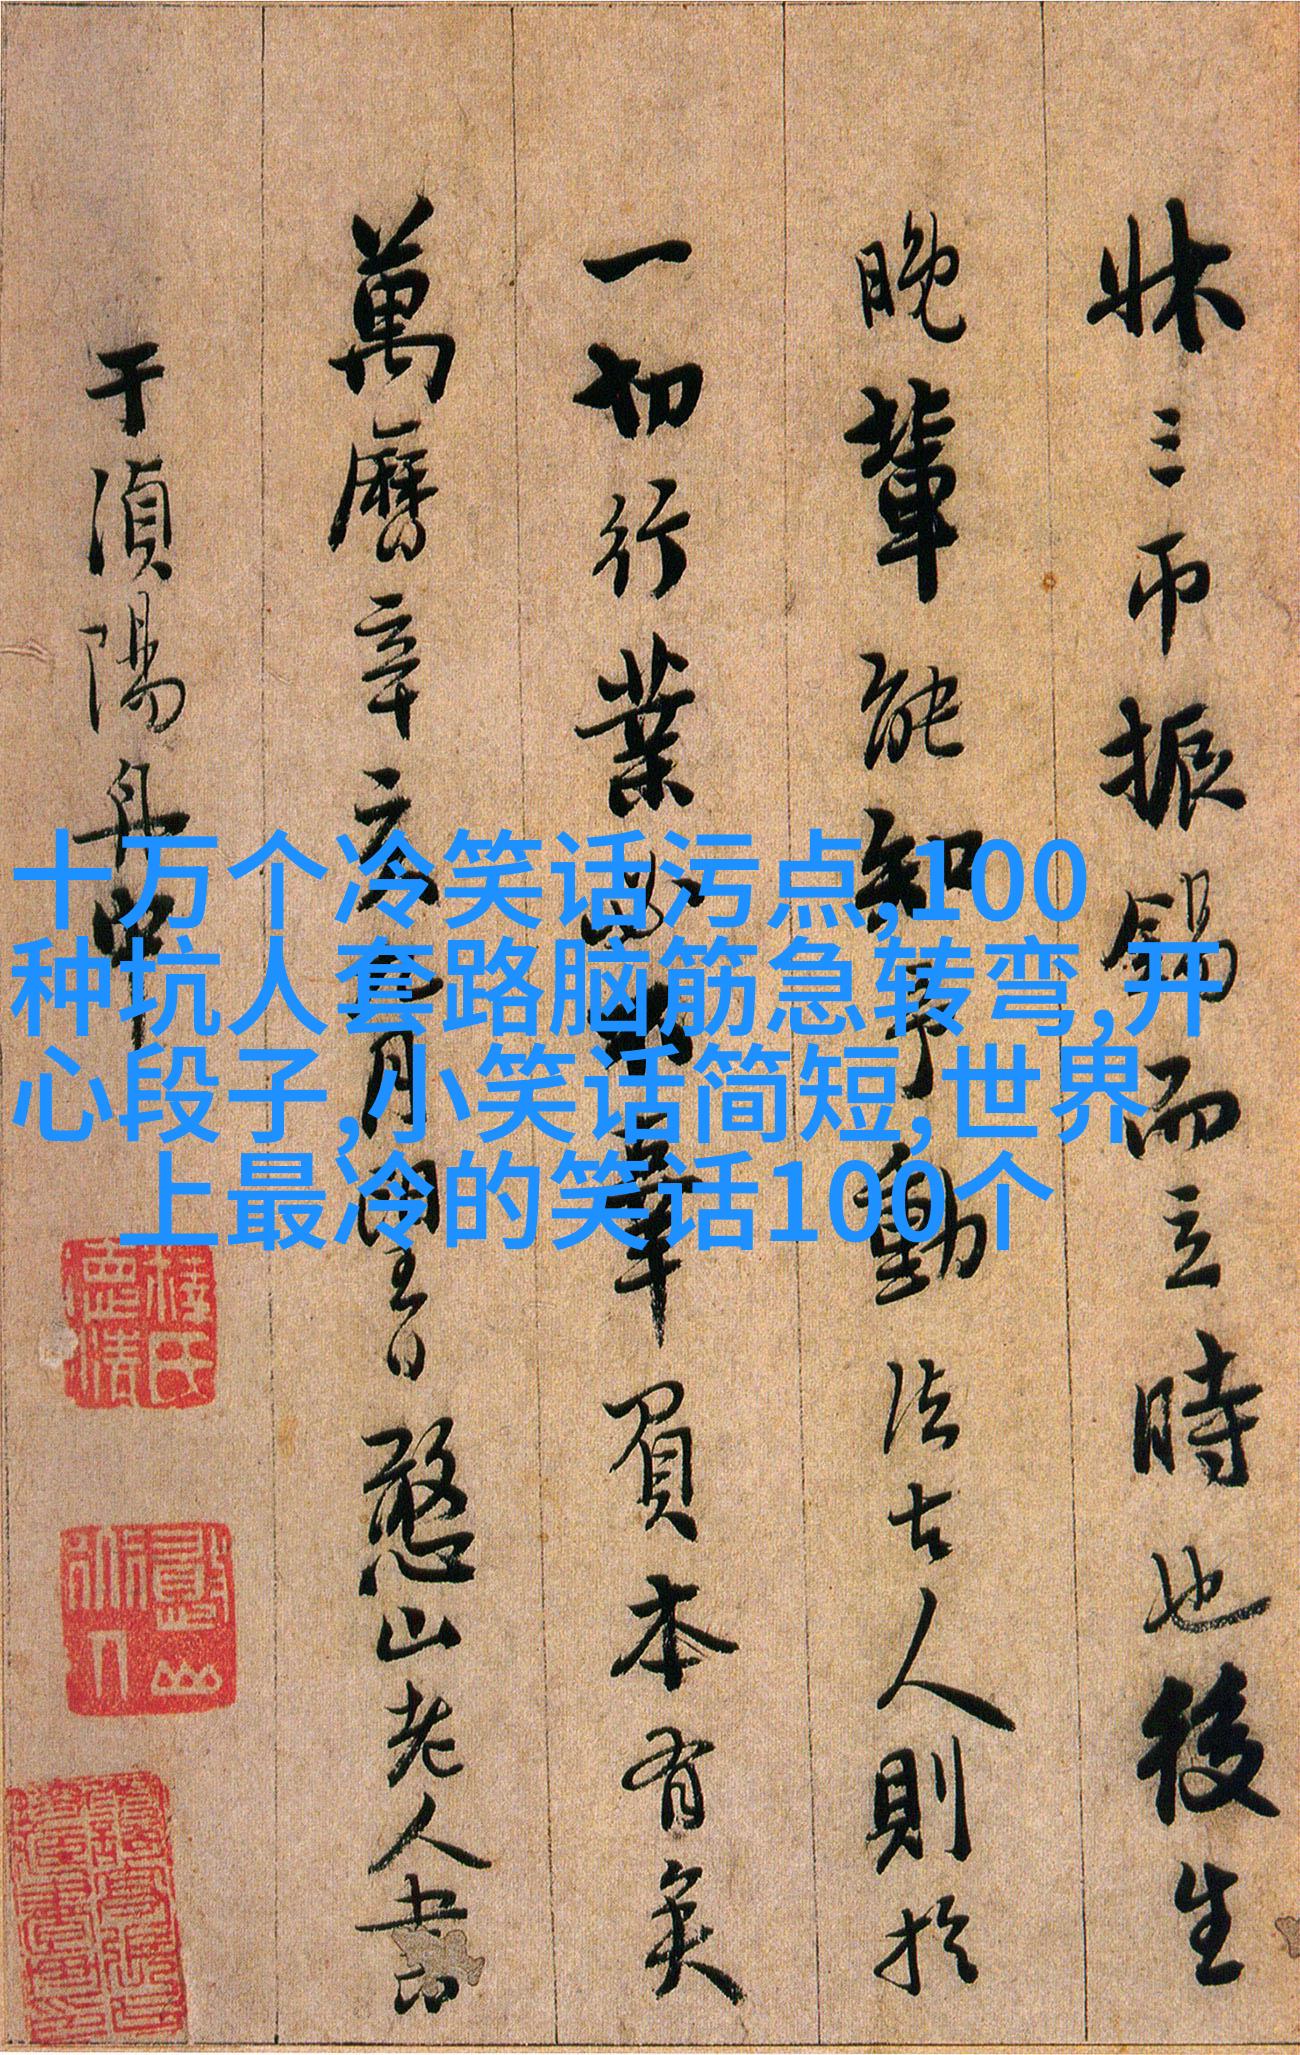 牀三帀振錫而立時也後生
晚輩能知動法古人則於
一切行業本有矣
萬曆辛亥月日憨山老人書
于湞陽舟中
十万个冷笑话污点,100
种坑人套路脑筋急转弯,开
心段子,小笑话简短,世界
上最冷的笑话100个